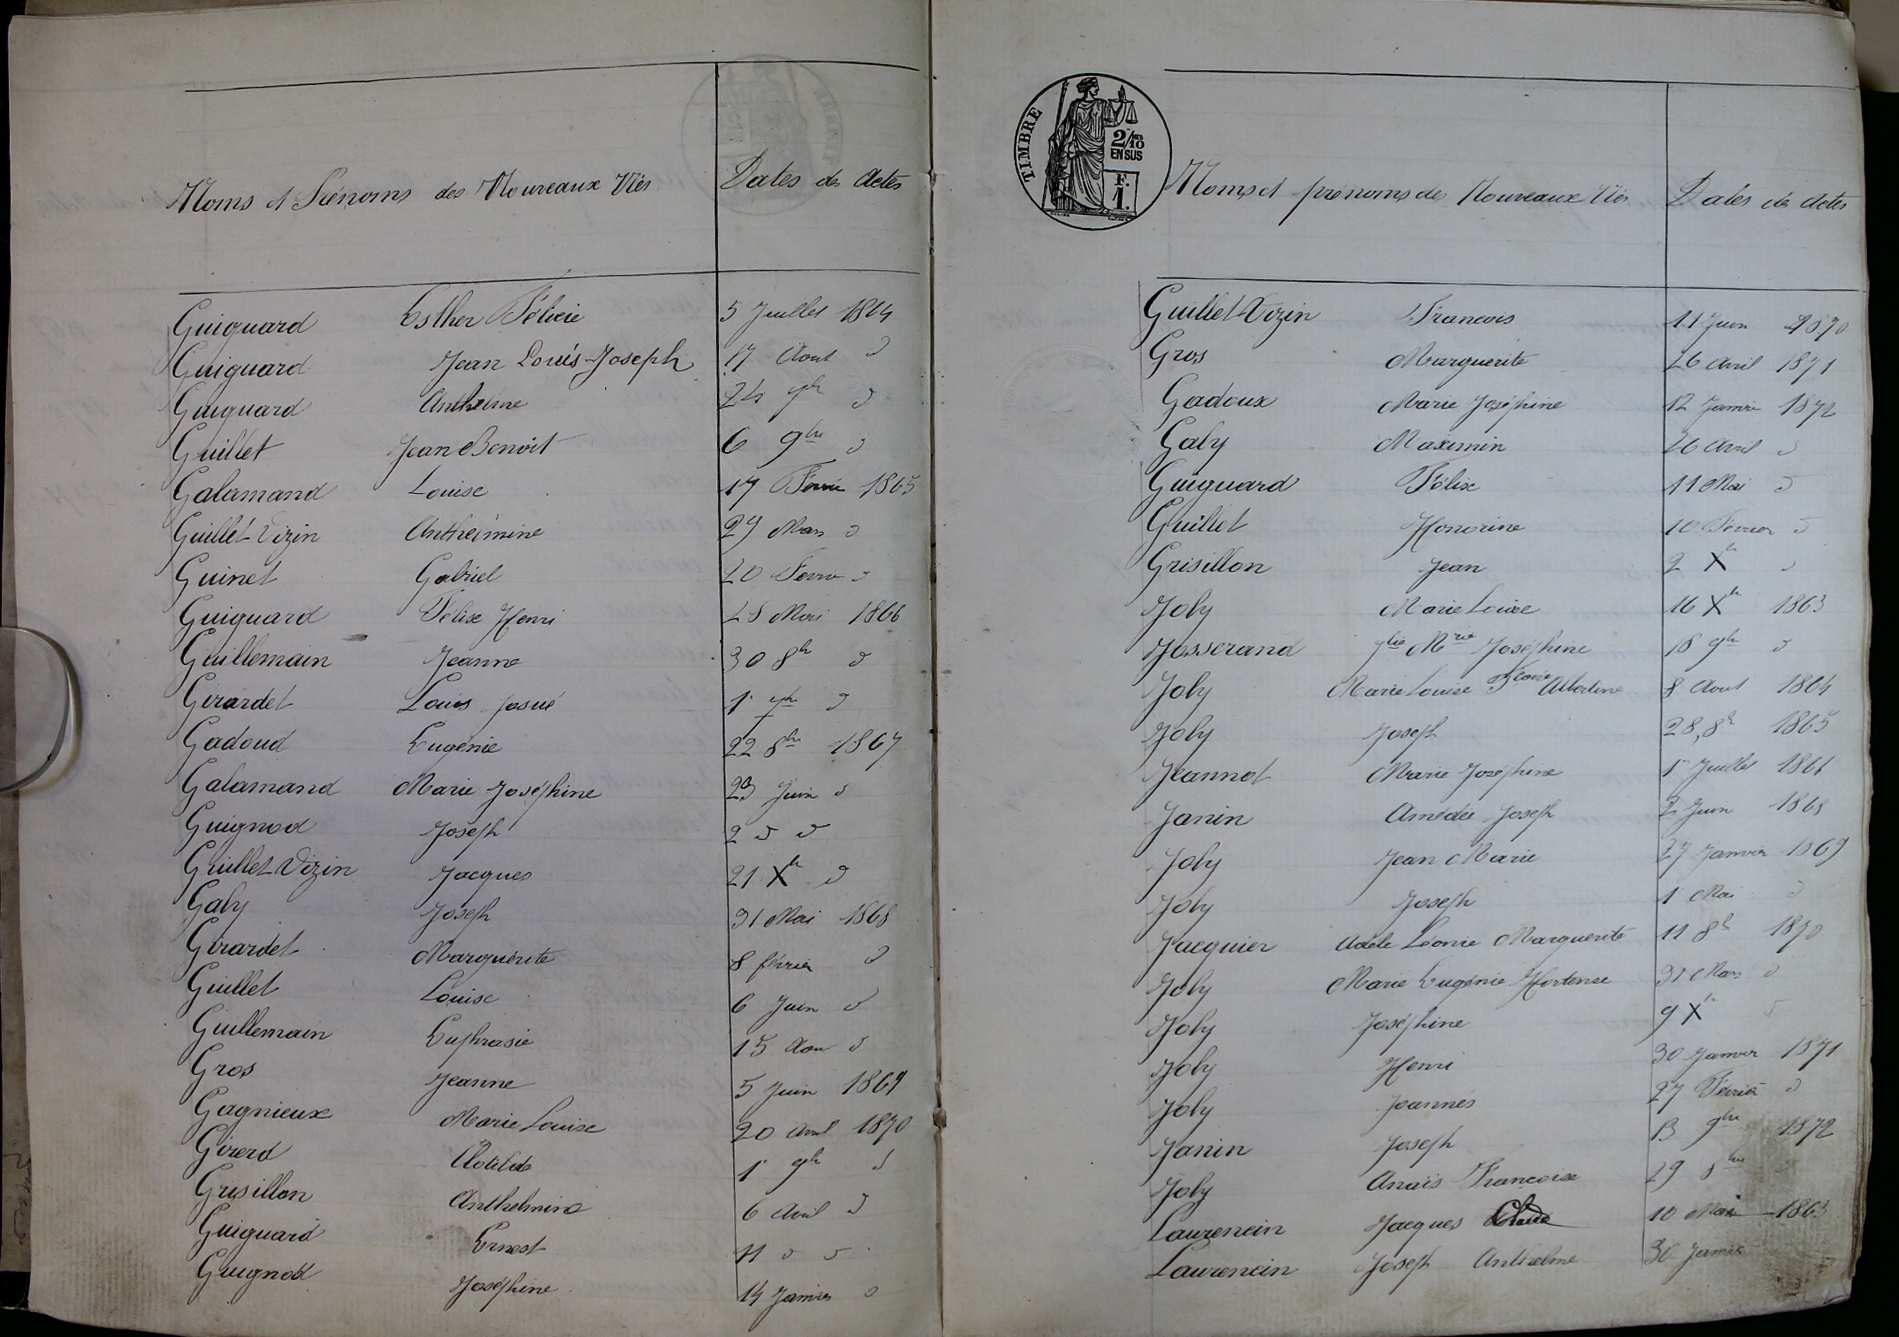 Noms et Prénoms des Nouveaux Nés Dates des Actes
Guiguard Esther Félicie 5 Juillet 1864
Guiguard Jean Louis Joseph 17 Aout d
Guiguard Anthelme 24 d
Guillet Jean Benoit 6 9bre d
Galamand Louise 17 Fevrie 1865
Guillet Vizin Anthelmine 29 Mars d
Guinet Gabriel 20 Fevrie d
Guiguard Félix Henri 28 Mai 1866
Guillemain Jeanne 30 8b d
Girardet Louis Josué 1r 7b d
Gadoud Eugénie 22 8bre 1867
Galamand Marie Joséphine 23 Juin d
Guignod Joseph 2 d d
Guillet Vizin Jacques 21 Xb d
Gaby Joseph 31 Mai 1868
Girardet Marguerite 8 février d
Guillet Louise 6 Juin d
Guillemain Euphrasie 15 Aou d
Gros Jeanne 5 Juin 1869
Gagnieux Marie Louise 20 Avril 1870
Girerd Clotilde 1r 9b d
Grisillon Anthelmine 6 Avril d
Guiguard Ernest 11 d d
Guignod Joséphine 14 Janvier d
TIMBRE
2/10 EN SUS
F. 1.
Noms et prénoms des Nouveaux Nés Dates des Actes
Guillet Vizin Francois 11 Juin 1870
Gros Marguerite 26 Avril 1871
Gadoux Marie Joséphine 12 Janvie 1872
Gaby Maximin 26 Avril d
Guiguard Félix 11 Mai d
Guillet Honorine 10 Février d
Grisillon Jean 2 Xb d
Joly Marie Louise 16 Xb 1863
Josserand Mrie Joséphine 18 9b d
Joly Marie Louise Albertine 8 Aout 1864
Joly Joseph 28, 8b 1865
Jeannot Marie Joséphine 1r Juillet 1866
Janin Amédée Joseph 2 Juin 1868
Joly Jean Marie 27 Janvier 1869
Joly Joseph 1r Mai d
Jacquier Adele Léonie Marguerite 11 8b 1870
Joly Marie Eugénie Hortense 31 Mars d
Joly Joséphine 9 Xb d
Joly Henri 30 Janvier 1871
Joly Jeannès 27 Février d
Janin Joseph 13 9bre 1872
Joly Anais Francoise 29 8bre
Laurencin Jacques Claude 10 Mai 1863
Laurencin Joseph Anthelme 30 Janvie